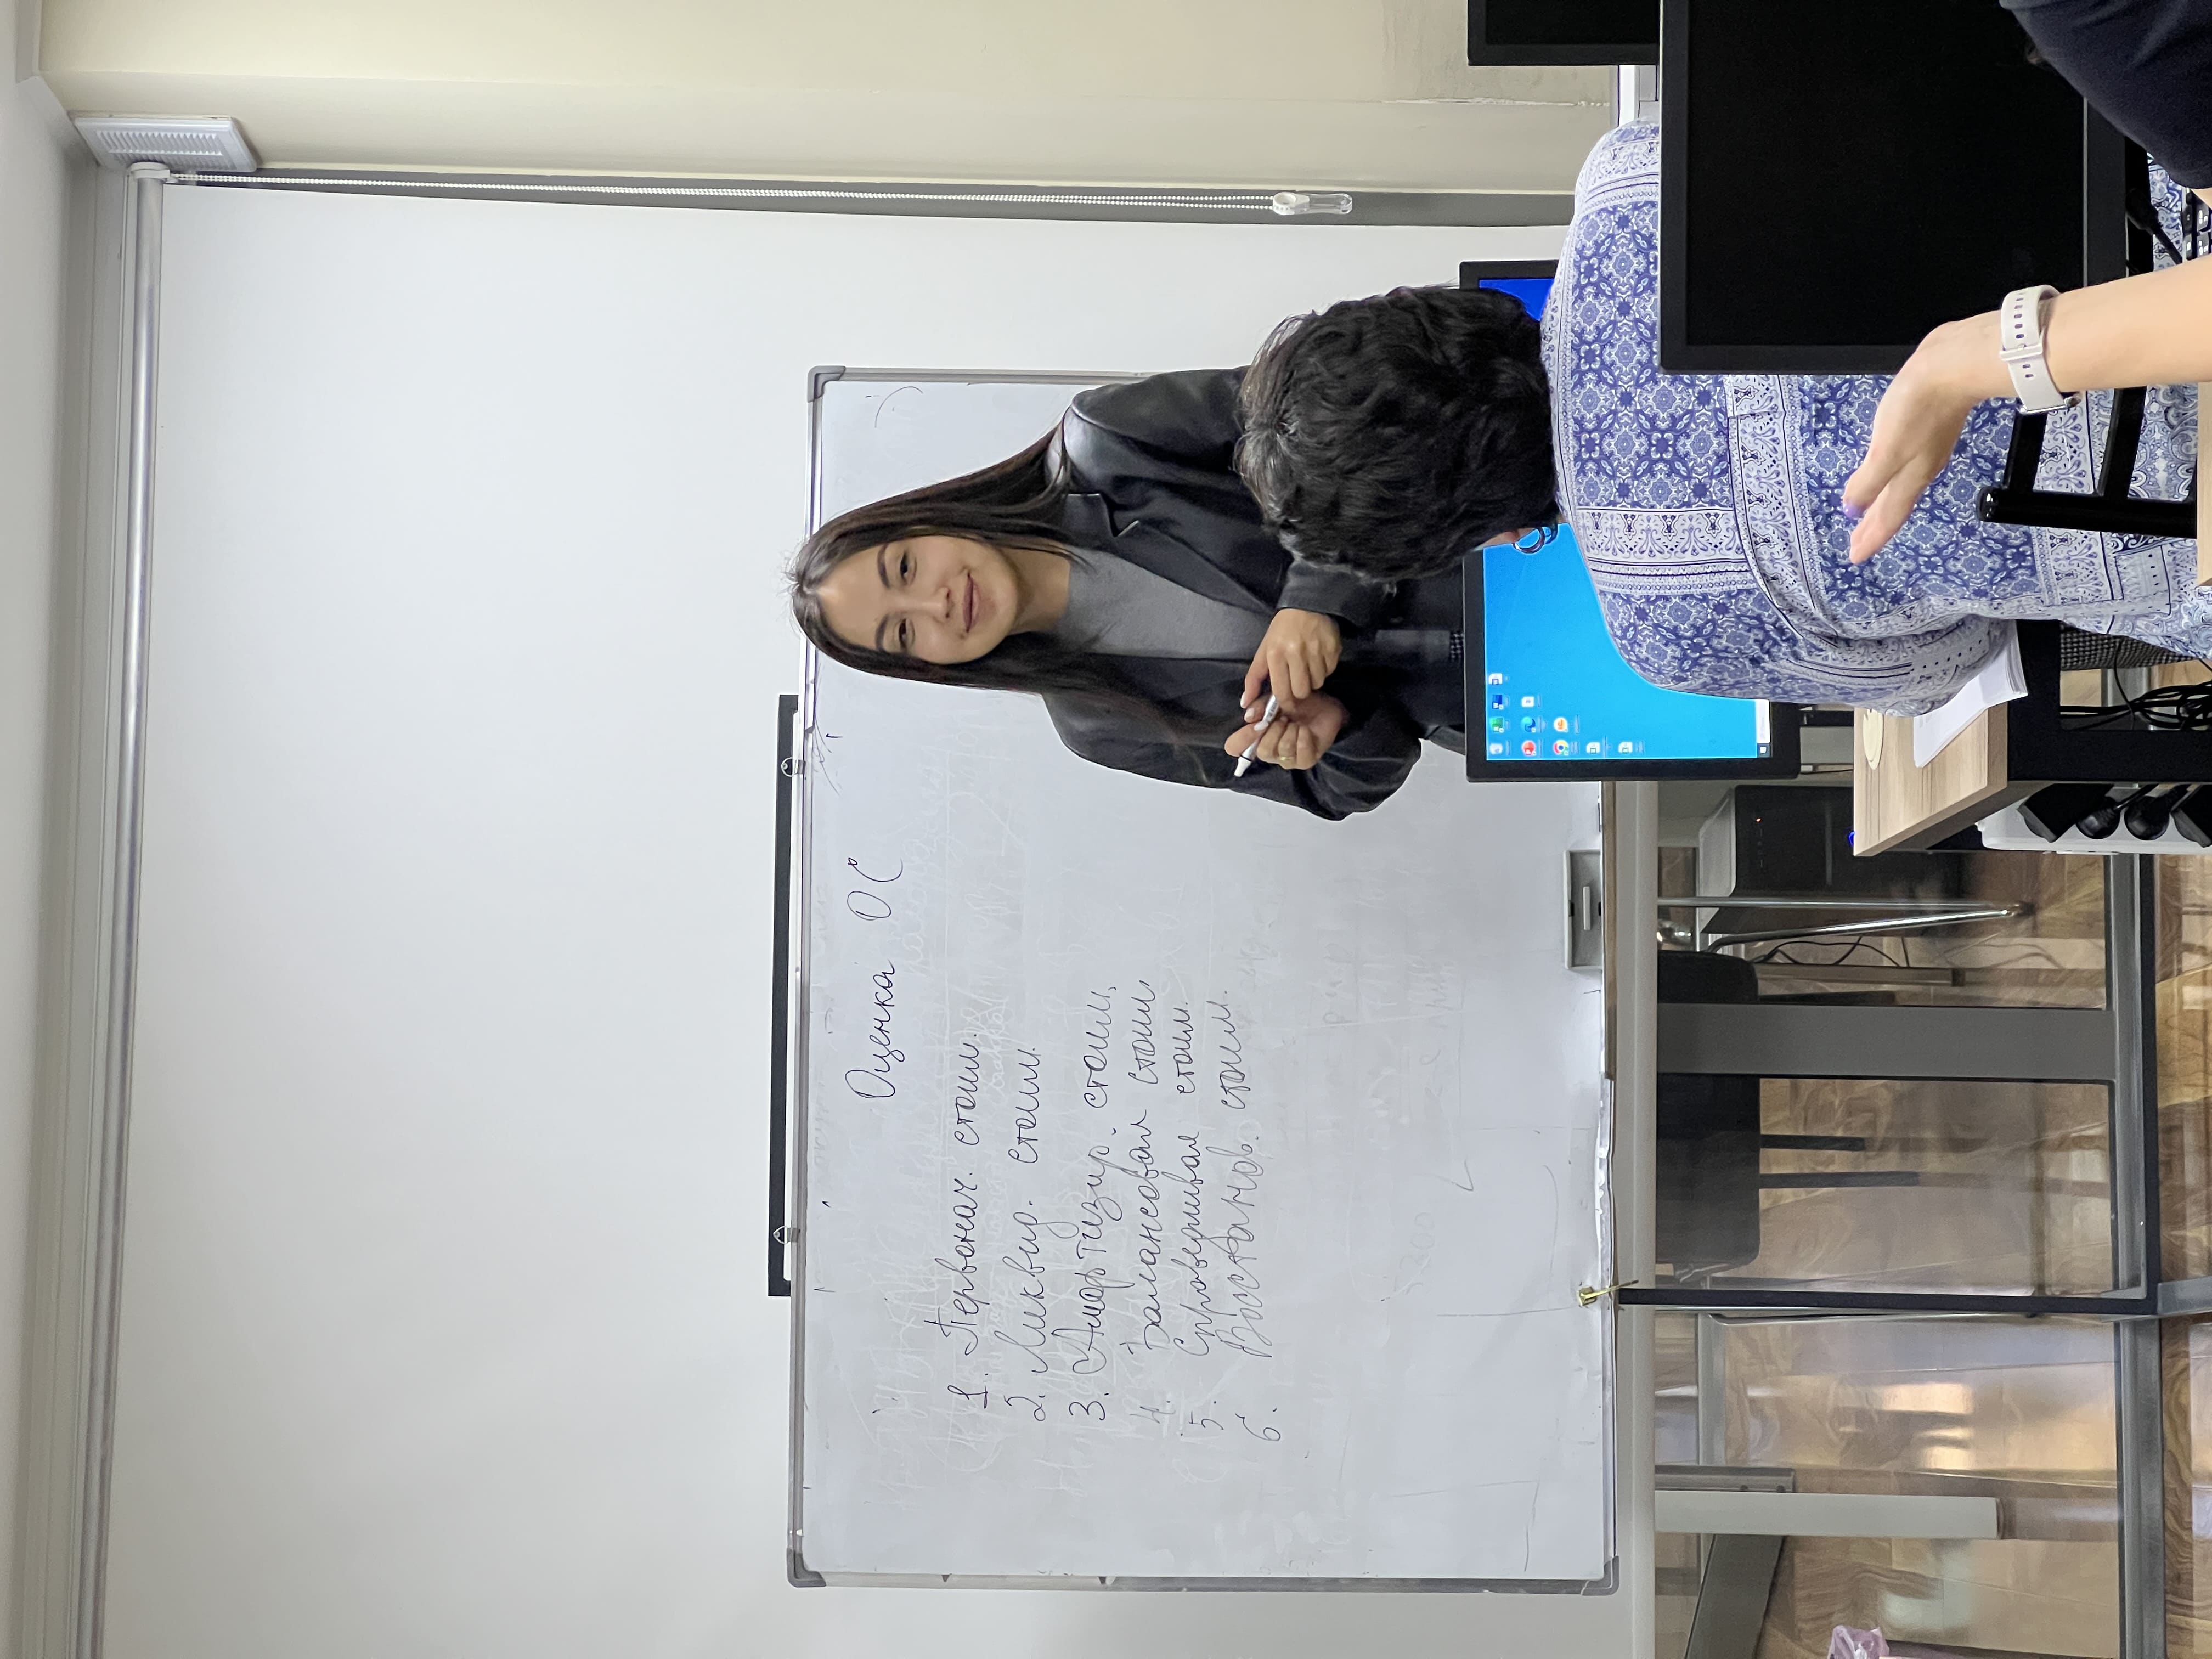 Оценка ОС
1. Первонач. стоим.
2. Ликвид. стоим.
3. Амортизир. стоим.
4. Балансовая стоим.
5. Справедливая стоим.
6. Восстанов. стоим.